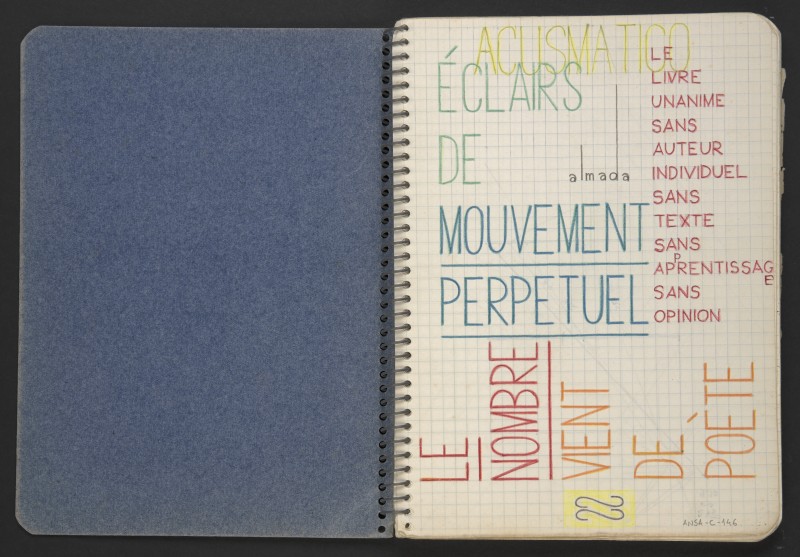 ACUSMATICO
ÉCLAIRS
DE
MOUVEMENT
PERPETUEL
almada
LE
LIVRE
UNANIME
SANS
AUTEUR
INDIVIDUEL
SANS
TEXTE
SANS
APPRENTISSAGE
SANS
OPINION
LE
NOMBRE
VIENT
DE
POÈTE
ANSA-C-146